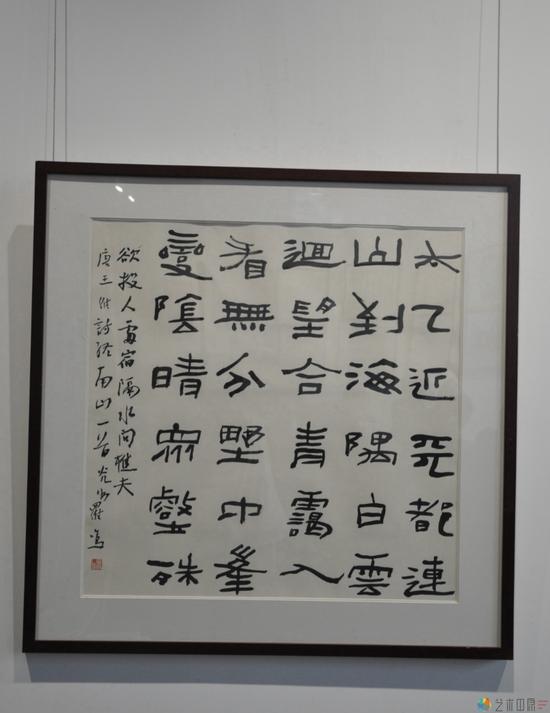 太乙近天都連
山到海隅白雲
迴望合青靄入
看無分墅中峯
變陰晴眾壑殊
欲投人處宿隔水問樵夫
唐王維詩終南山一首
艺术中原